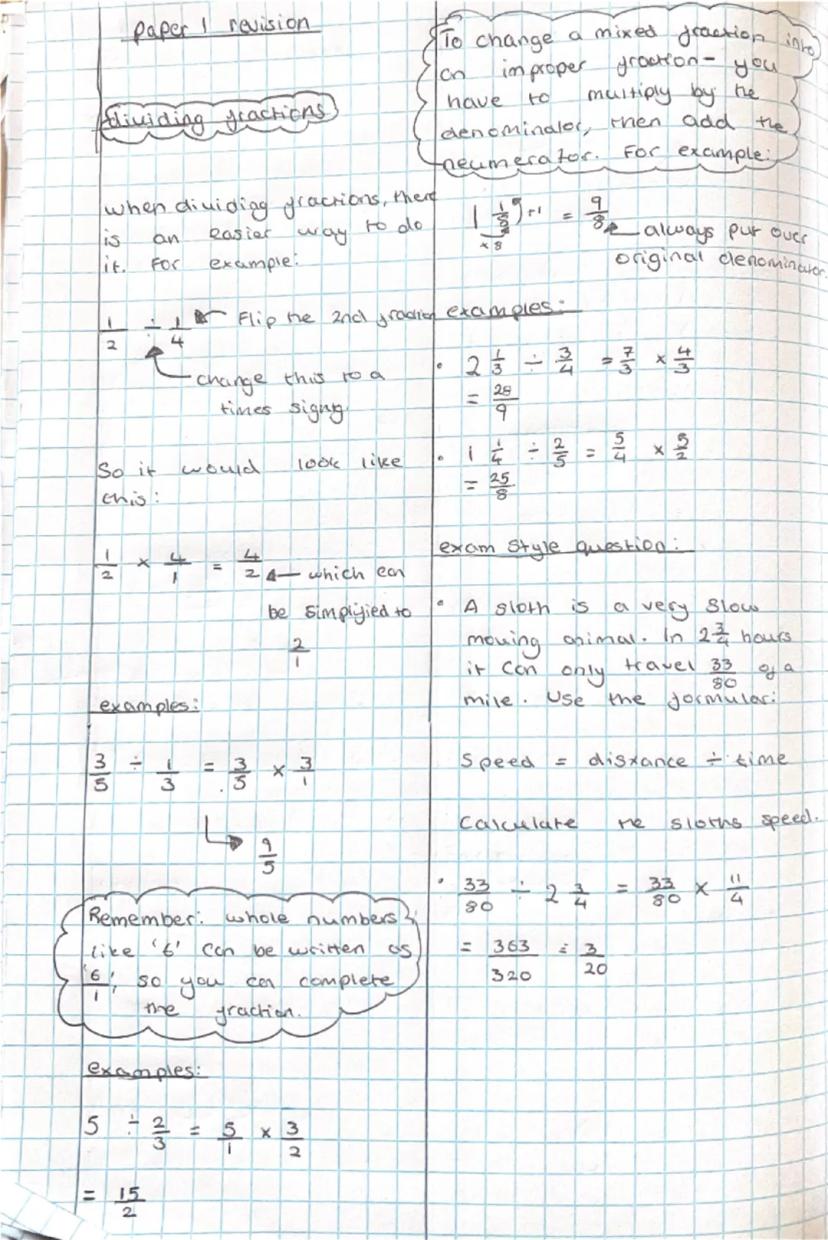 paper 1 revision
dividing fractions
when dividing fractions, there
is an easier way to do
it. For example:
1/2 ÷ 1/4 ← Flip the 2nd fraction
change this to a
times signg
So it would look like
this:
1/2 × 4/1 = 4/2 ← which can
be simplified to
2/1
examples:
3/5 ÷ 1/3 = 3/5 × 3/1
→ 9/5
Remember: whole numbers
like '6' can be written as
'6/1', so you can complete
the fraction.
examples:
5 ÷ 2/3 = 5/1 × 3/2
= 15/2
To change a mixed fraction into
an improper fraction - you
have to multiply by he
denominator, then add the
neumerator. For example:
1 1/8 +1 = 9/8 ← always put over
×8
original denominator
examples:
• 2 1/3 ÷ 3/4 = 7/3 × 4/3
= 28/9
• 1 1/4 ÷ 2/5 = 5/4 × 5/2
= 25/8
exam style question:
• A sloth is a very slow
moving animal. In 2 3/4 hours
it can only travel 33/80 of a
mile. Use the formular:
Speed = distance ÷ time
Calculate he sloths speed.
• 33/80 ÷ 2 3/4 = 33/80 × 11/4
= 363/320 = 3/20